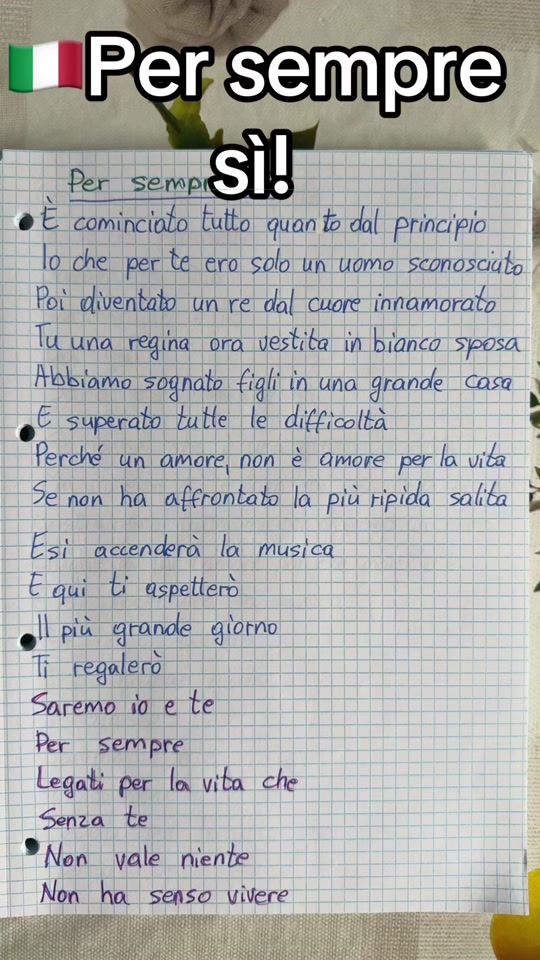 🇮🇹Per sempre
sì!
Per semp
È cominciato tutto quanto dal principio
Io che per te ero solo un uomo sconosciuto
Poi diventato un re dal cuore innamorato
Tu una regina ora vestita in bianco sposa
Abbiamo sognato figli in una grande casa
E superato tutte le difficoltà
Perché un amore, non è amore per la vita
Se non ha affrontato la più ripida salita
Esi accenderà la musica
E qui ti aspetterò
Il più grande giorno
Ti regalerò
Saremo io e te
Per sempre
Legati per la vita che
Senza te
Non vale niente
Non ha senso vivere